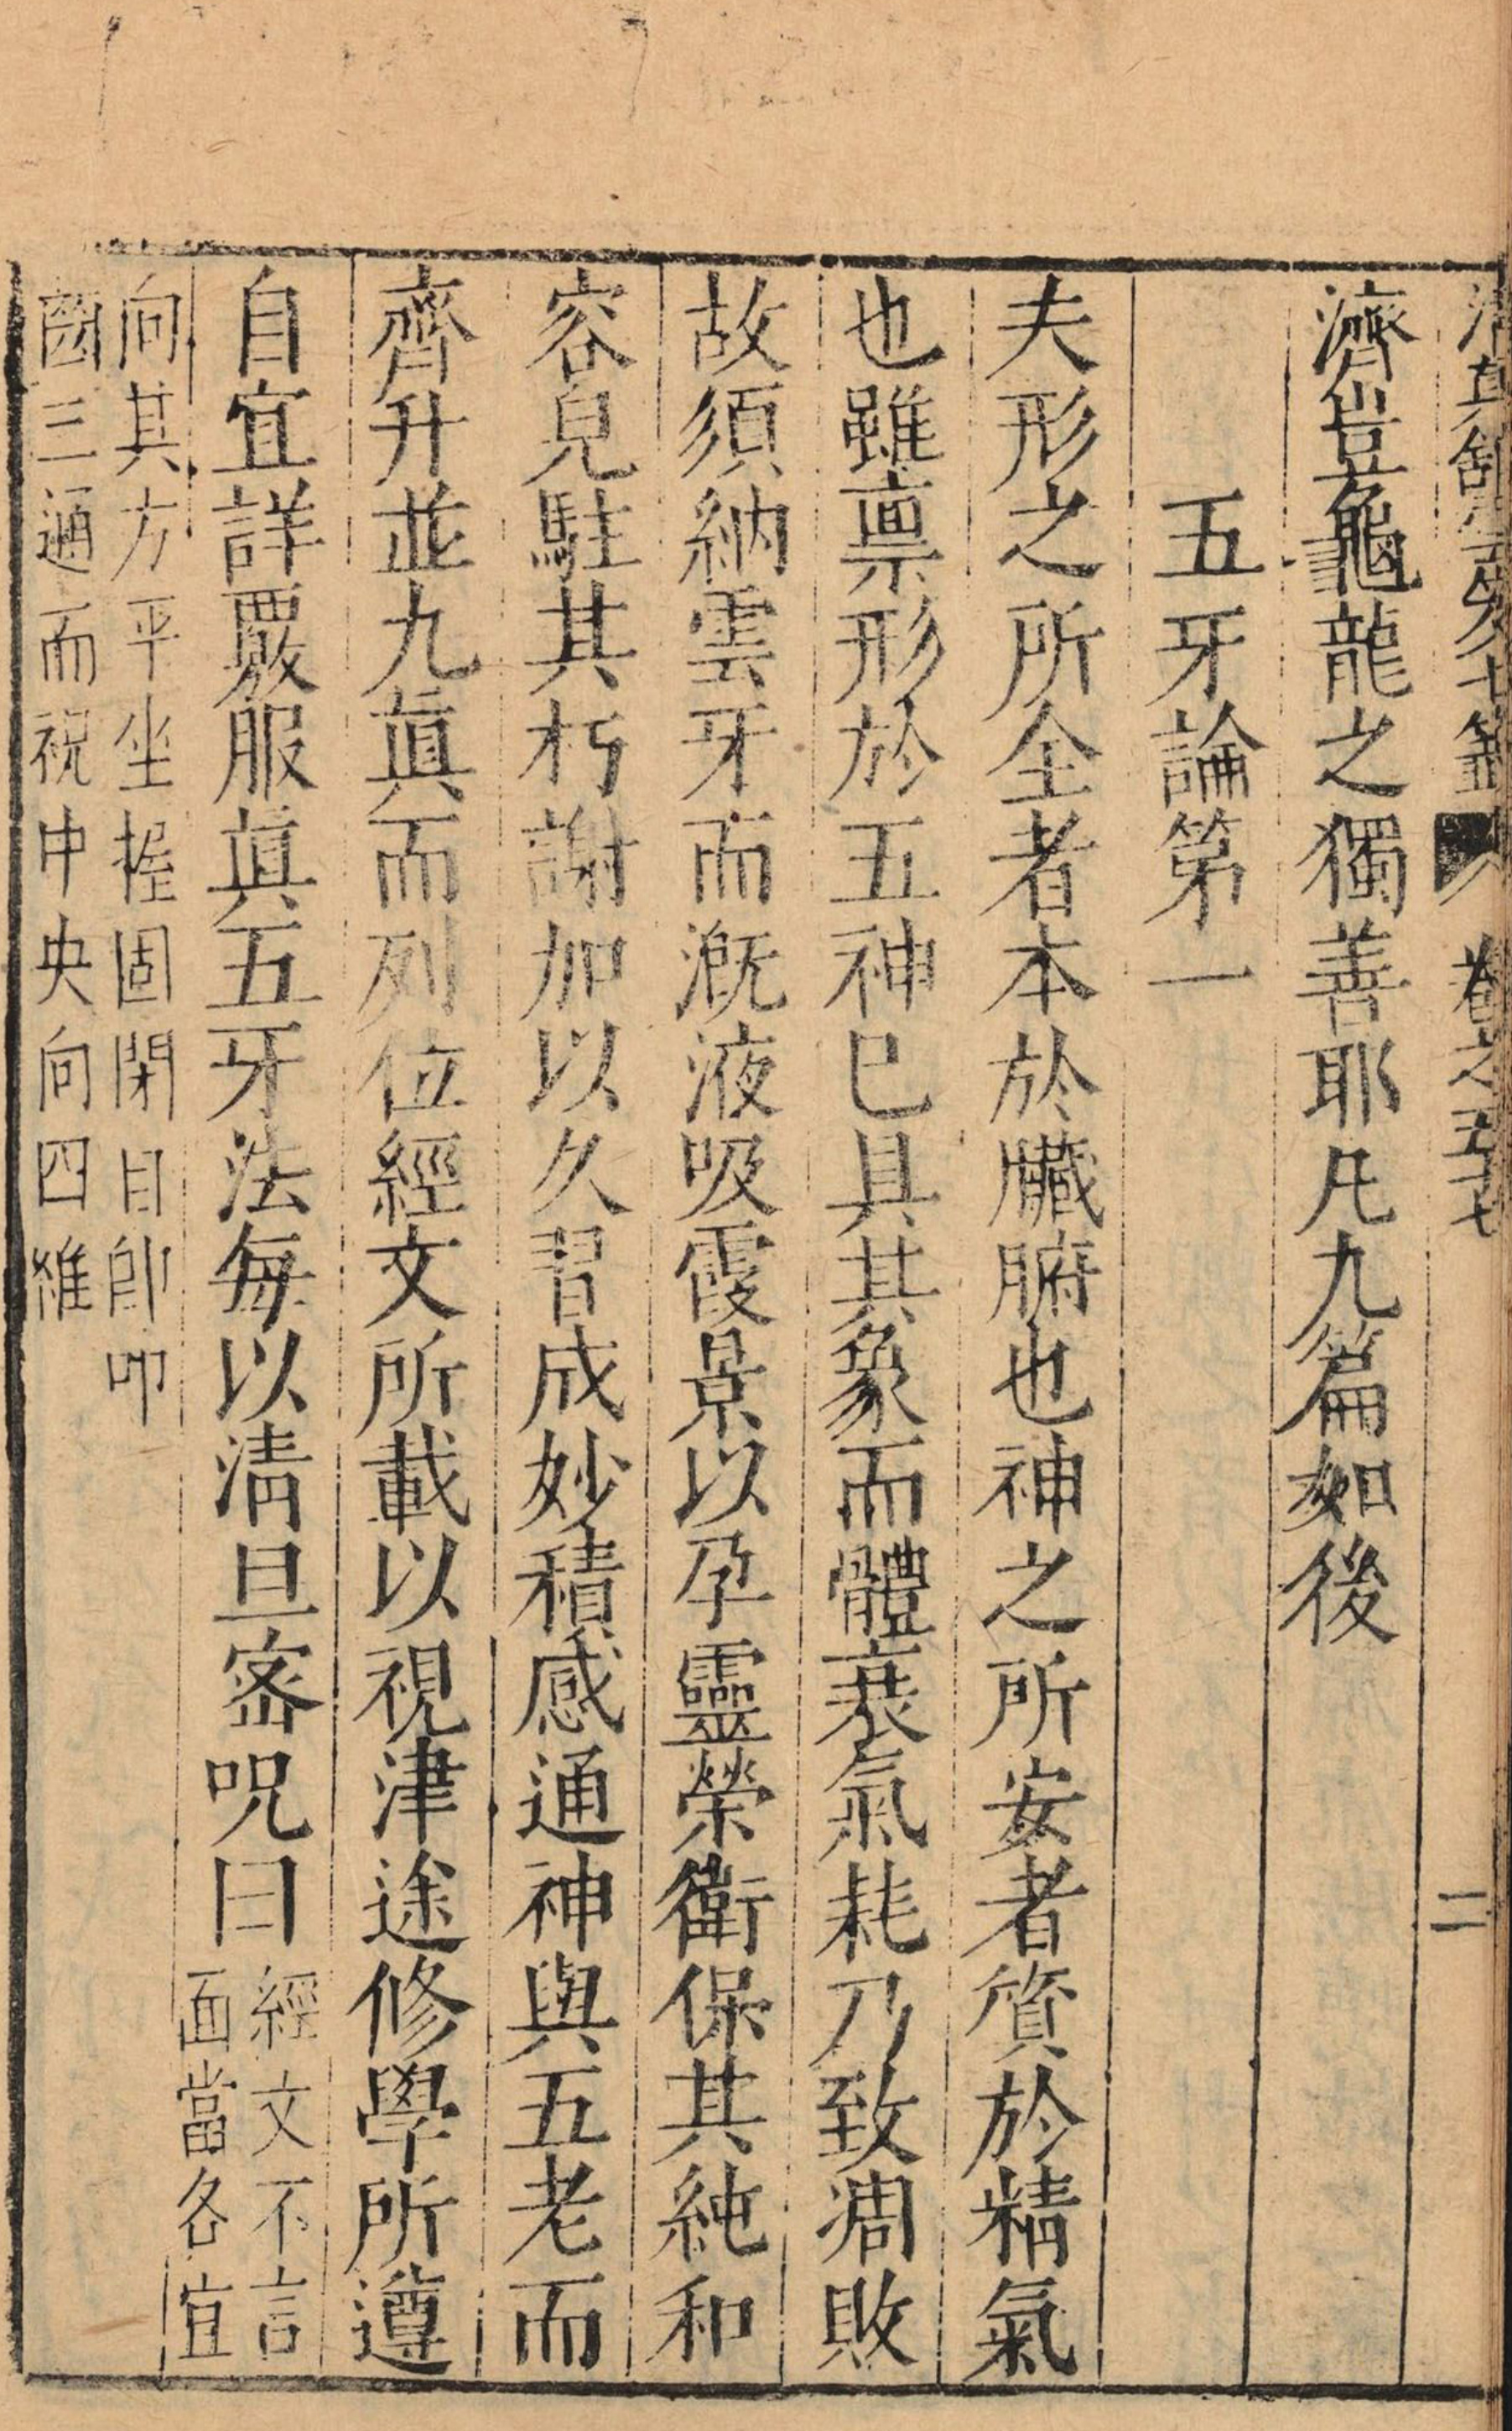 清真館雲笈七籤 卷之五十七 二
濟豈龜龍之獨善耶凡九篇如後
五牙論第一
夫形之所全者本於臟腑也神之所安者質於精氣
也雖禀形於五神已具其象而體衰氣耗乃致凋敗
故須納雲牙而漑液吸霞景以孕靈榮衛保其純和
容皃駐其朽謝加以久習成妙積感通神與五老而
齊升並九眞而列位經文所載以視津途修學所遵
自宜詳覈服眞五牙法每以清旦宻呪曰經文不言
面當各宜
向其方平坐握固閉目卽叩
齒三通而祝中央向四維